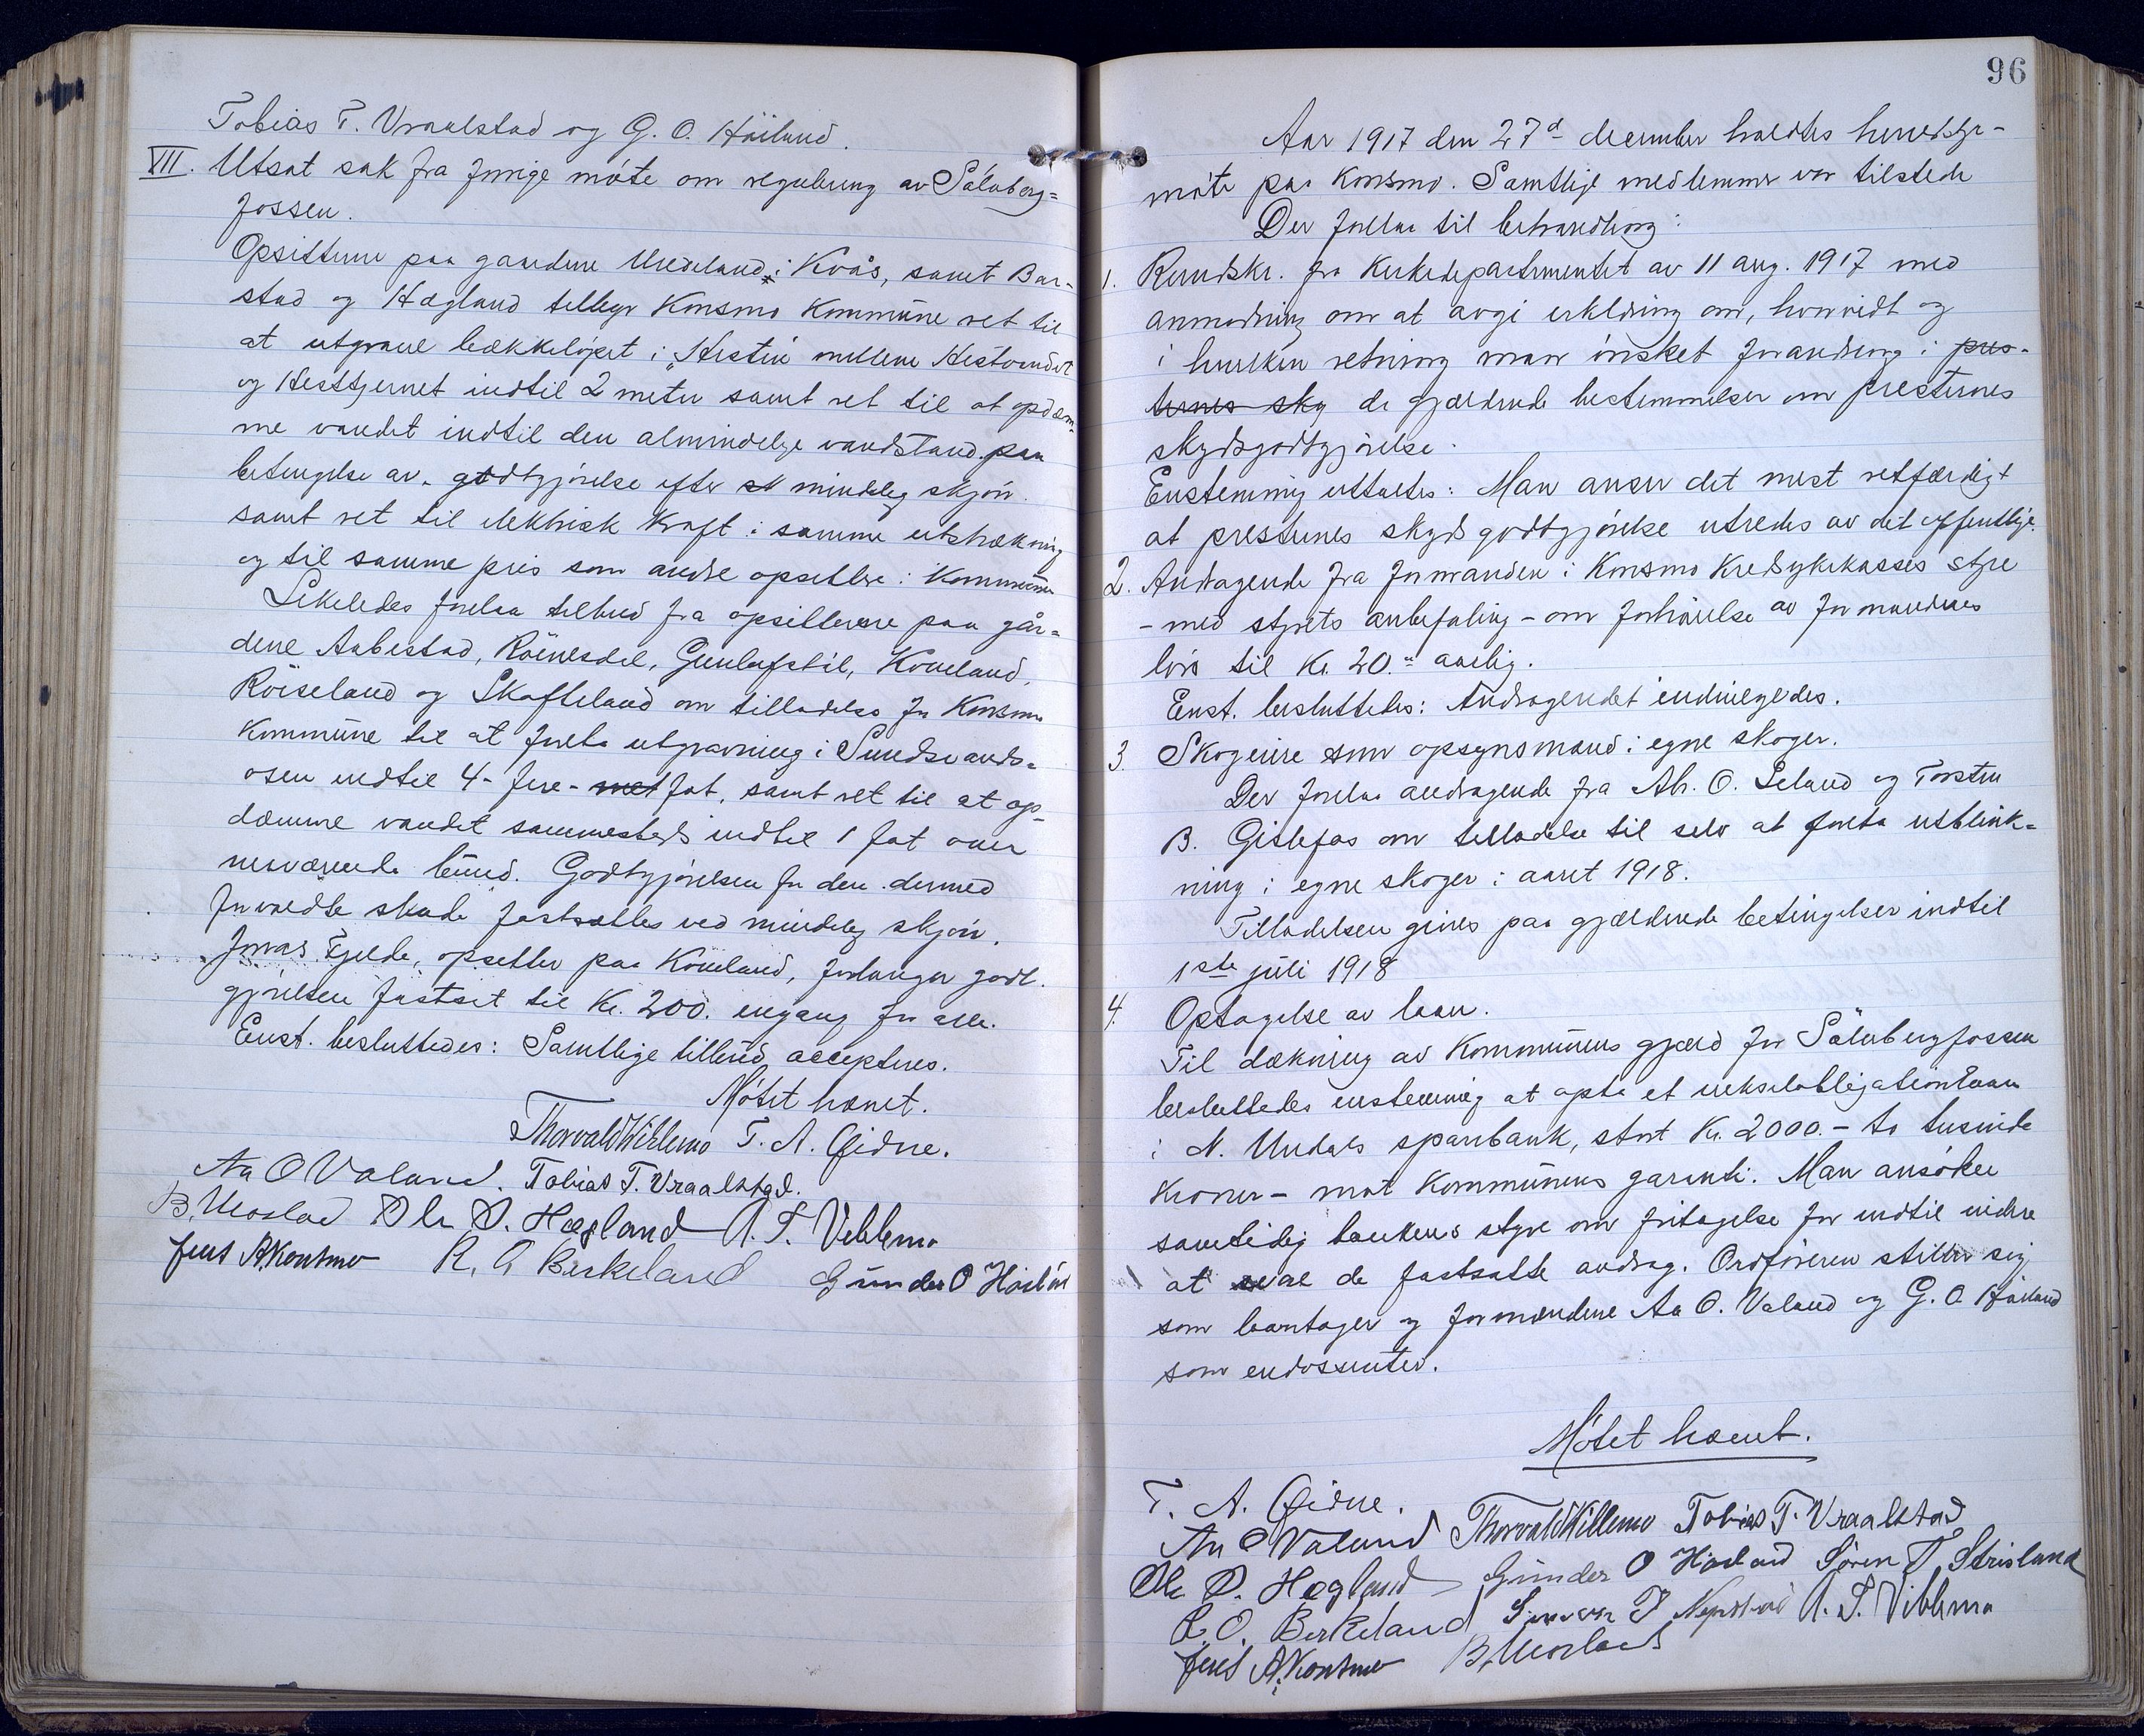 Tobias T. Vraalstad og G. O. Höiland.
VII. Utsat sak fra forrige møte om regulering av Sälnberg=
fossen.
Opsitterne paa gaardene Undeland i Kvås, samt Bar-
stad og Hægland tillegr Konsmo Kommune ret til
at utgrave bækkeløpet i "Hestu mellem Hestvandet
og Hesttjernet indtil 2 meter samt ret til at opdæm-
me vandet indtil den almindelige vandstand. paa
betingelse av godtgjørelse efter mindelig skjøn.
samt ret til elektrisk kraft i samme utstrækning
og til samme pris som andre opsittere i Kommunen
Likeledes forelaa tilbud fra opsitterne paa går=
dene Aabestad, Röinesdal, Gunlafstöl, Koveland,
Röiseland og Skofteland om tilladelse for Konsmo
Kommune til at foreta utgravning i Sundsvands=
osen indtil 4- fire- fot, samt ret til at op-
dæmme vandet sammesteds indtil 1 fot over
nuværende bund. Godtgjørelsen for den dermed
forvoldte skade fastsættes ved mindelig skjøn.
Jonas Fjelde, opsitter paa Kóveland, forlanger godt-
gjørelsen fastsat til Kr. 200. engang for alle.
Enst. besluttedes: Samtlige tilbud accepteres.
Møtet hævet.
Thorvald Viblemo T. A. Eidne.
Aa O Valand. Tobias T. Vraalstad.
B. Moslad Ole O. Hægland A. T. Viblemo
Jens A. Konsmo R. O Birkeland Gunder O Höiland
96
Aar 1917 den 27d december holdtes herredssty-
møte paa Konsmo. Samtlige medlemmer var tilstede
Der forelaa til behandling:
1. Rundskr. fra Kirkedepartementet av 11 aug. 1917 med
anmodning om at avgi erklæring om, hvorvidt og
i hvilken retning man ønsket forandring i pres-
ternes sky de gjældende bestemmelser om presternes
skydsgodtgjørelse.
Enstemmig uttaltes: Man anser det mest retfærdigt
at presternes skydsgodtgjørelse utredes av det offentlige.
2. Andragende fra formanden i Konsmo Kredsykekasses styre
- med styrets anbefaling - om forhøielse av formandens
løn til Kr. 20.- aarlig.
Enst. besluttedes: Andragendet indvilgedes.
3. Skogeiere som opsynsmænd i egne skoger.
Der forelaa andragende fra Ab. O. Leland og Torsten
B. Gislefos om tilladelse til selv at foreta utblink=
ning i egne skoger i aaret 1918.
Tilladelsen gives paa gjældende betingelser indtil
1ste juli 1918
4. Optagelse av laan.
Til dækning av Kommunens gjæld for Sälnbergfossen
besluttedes enstemmig at opta et vekselobligationlaan
i N. Undals sparebank, stort Kr. 2000.- to tusinde
Kroner - mot Kommunens garanti. Man ansøker
samtidig bankens styre om fritagelse for indtil videre
at betale de fastsatte avdrag. Ordføreren stiller sig
som laantager og formændene Aa O. Valand og G. O. Höiland
som endossenter.
Møtet hævet.
T. A. Eidne.
Aa O Valand Thorvald Viblemo Tobias T. Vraalstad
Ole O. Hægland Gunder O Höiland Sören T. Strisland
R. O. Birkeland T Nepstad A. T. Viblemo
Jens A. Konsmo B. Moslad